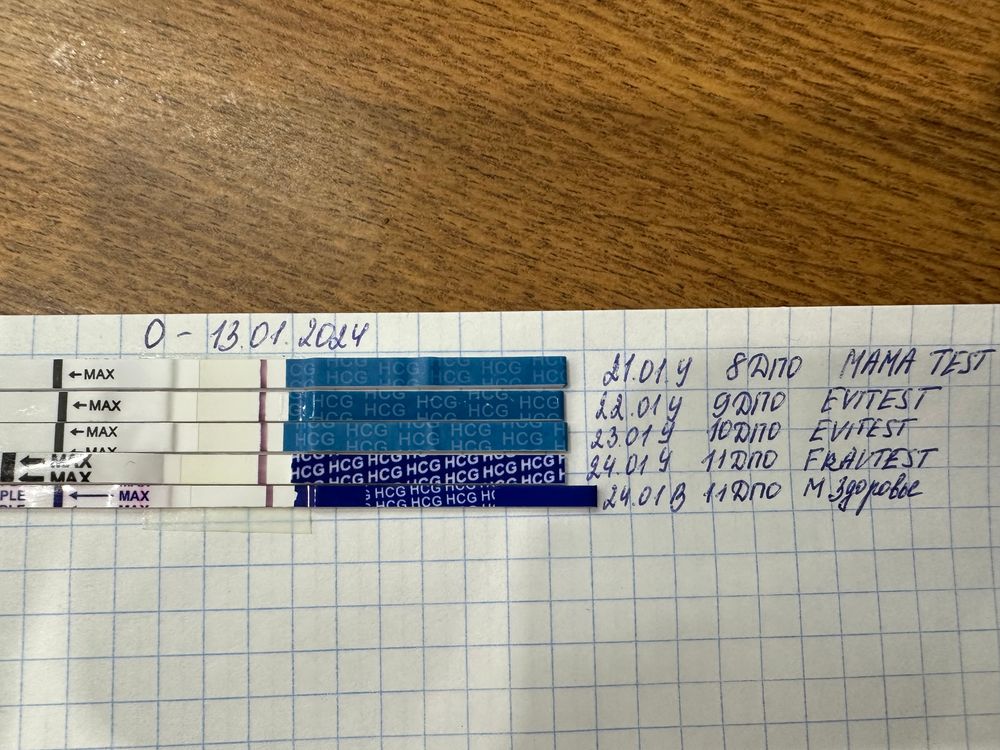 О - 13.01.2024
←MAX HCG HCG HCG HCG HCG 21.01 У 8ДПО MAMA TEST
←MAX HCG HCG HCG HCG HCG 22.01 У 9ДПО EVITEST
←MAX HCG HCG HCG HCG HCG 23.01 У 10ДПО EVITEST
←MAX HCG HCG HCG HCG HCG HCG 24.01 У 11ДПО FRAUTEST
PLE ← MAX HCG HCG HCG 24.01 В 11ДПО М Здоровье